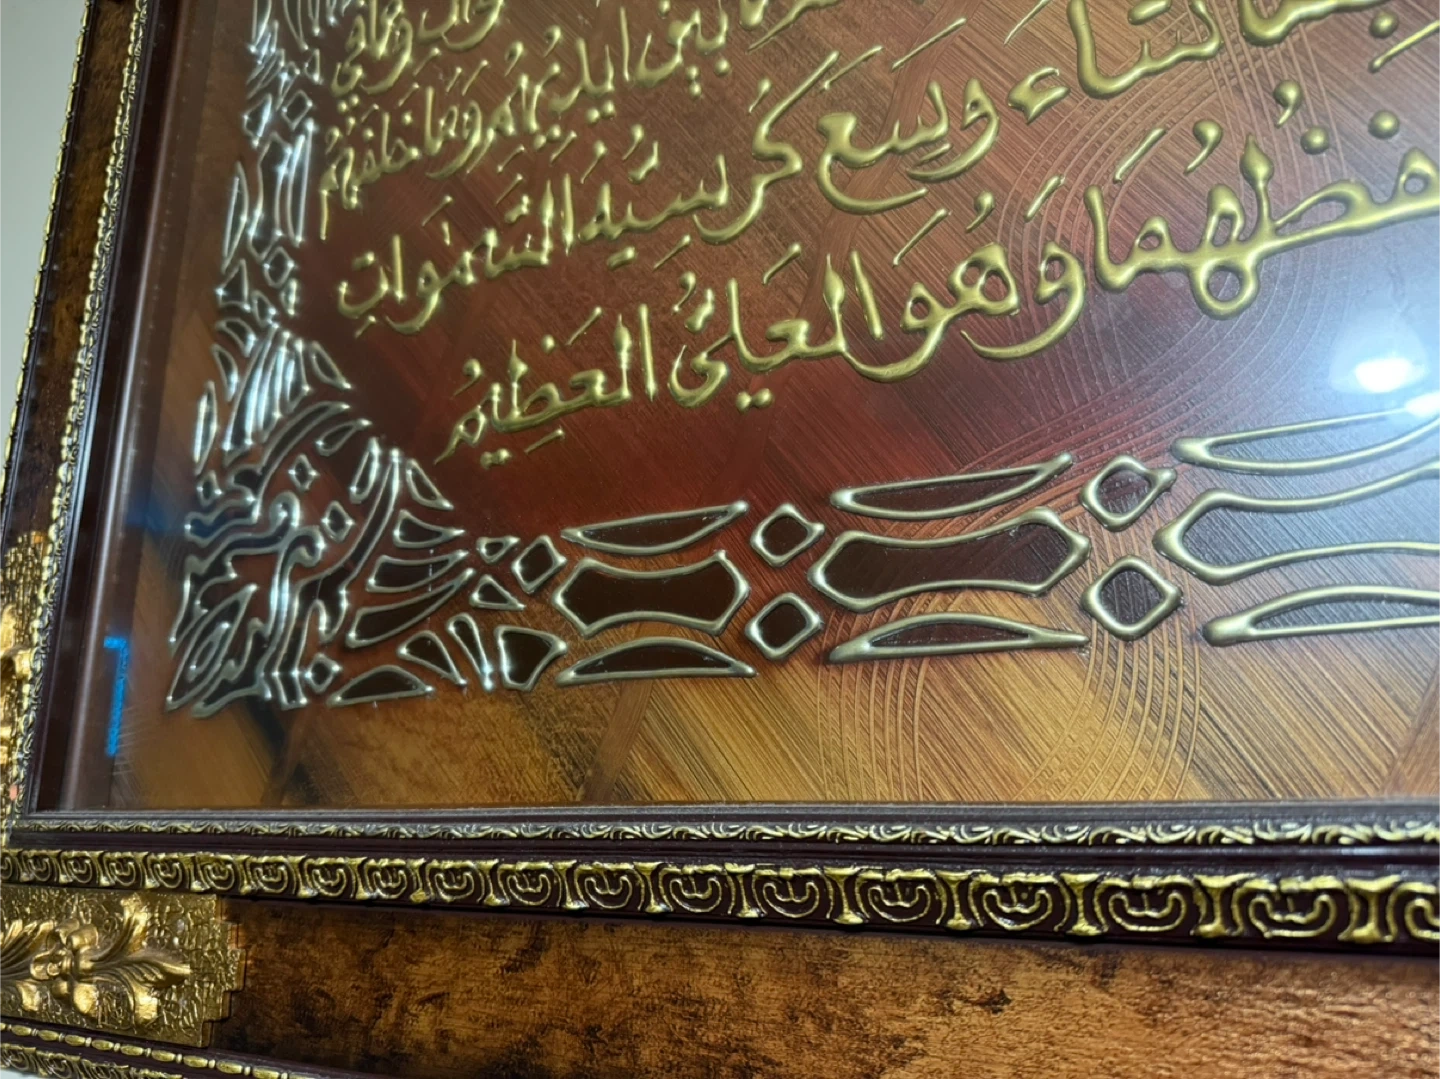 بين أيديهم وما خلفهم
بما شاء وسع كرسيه السموات
حفظهما وهو العلي العظيم